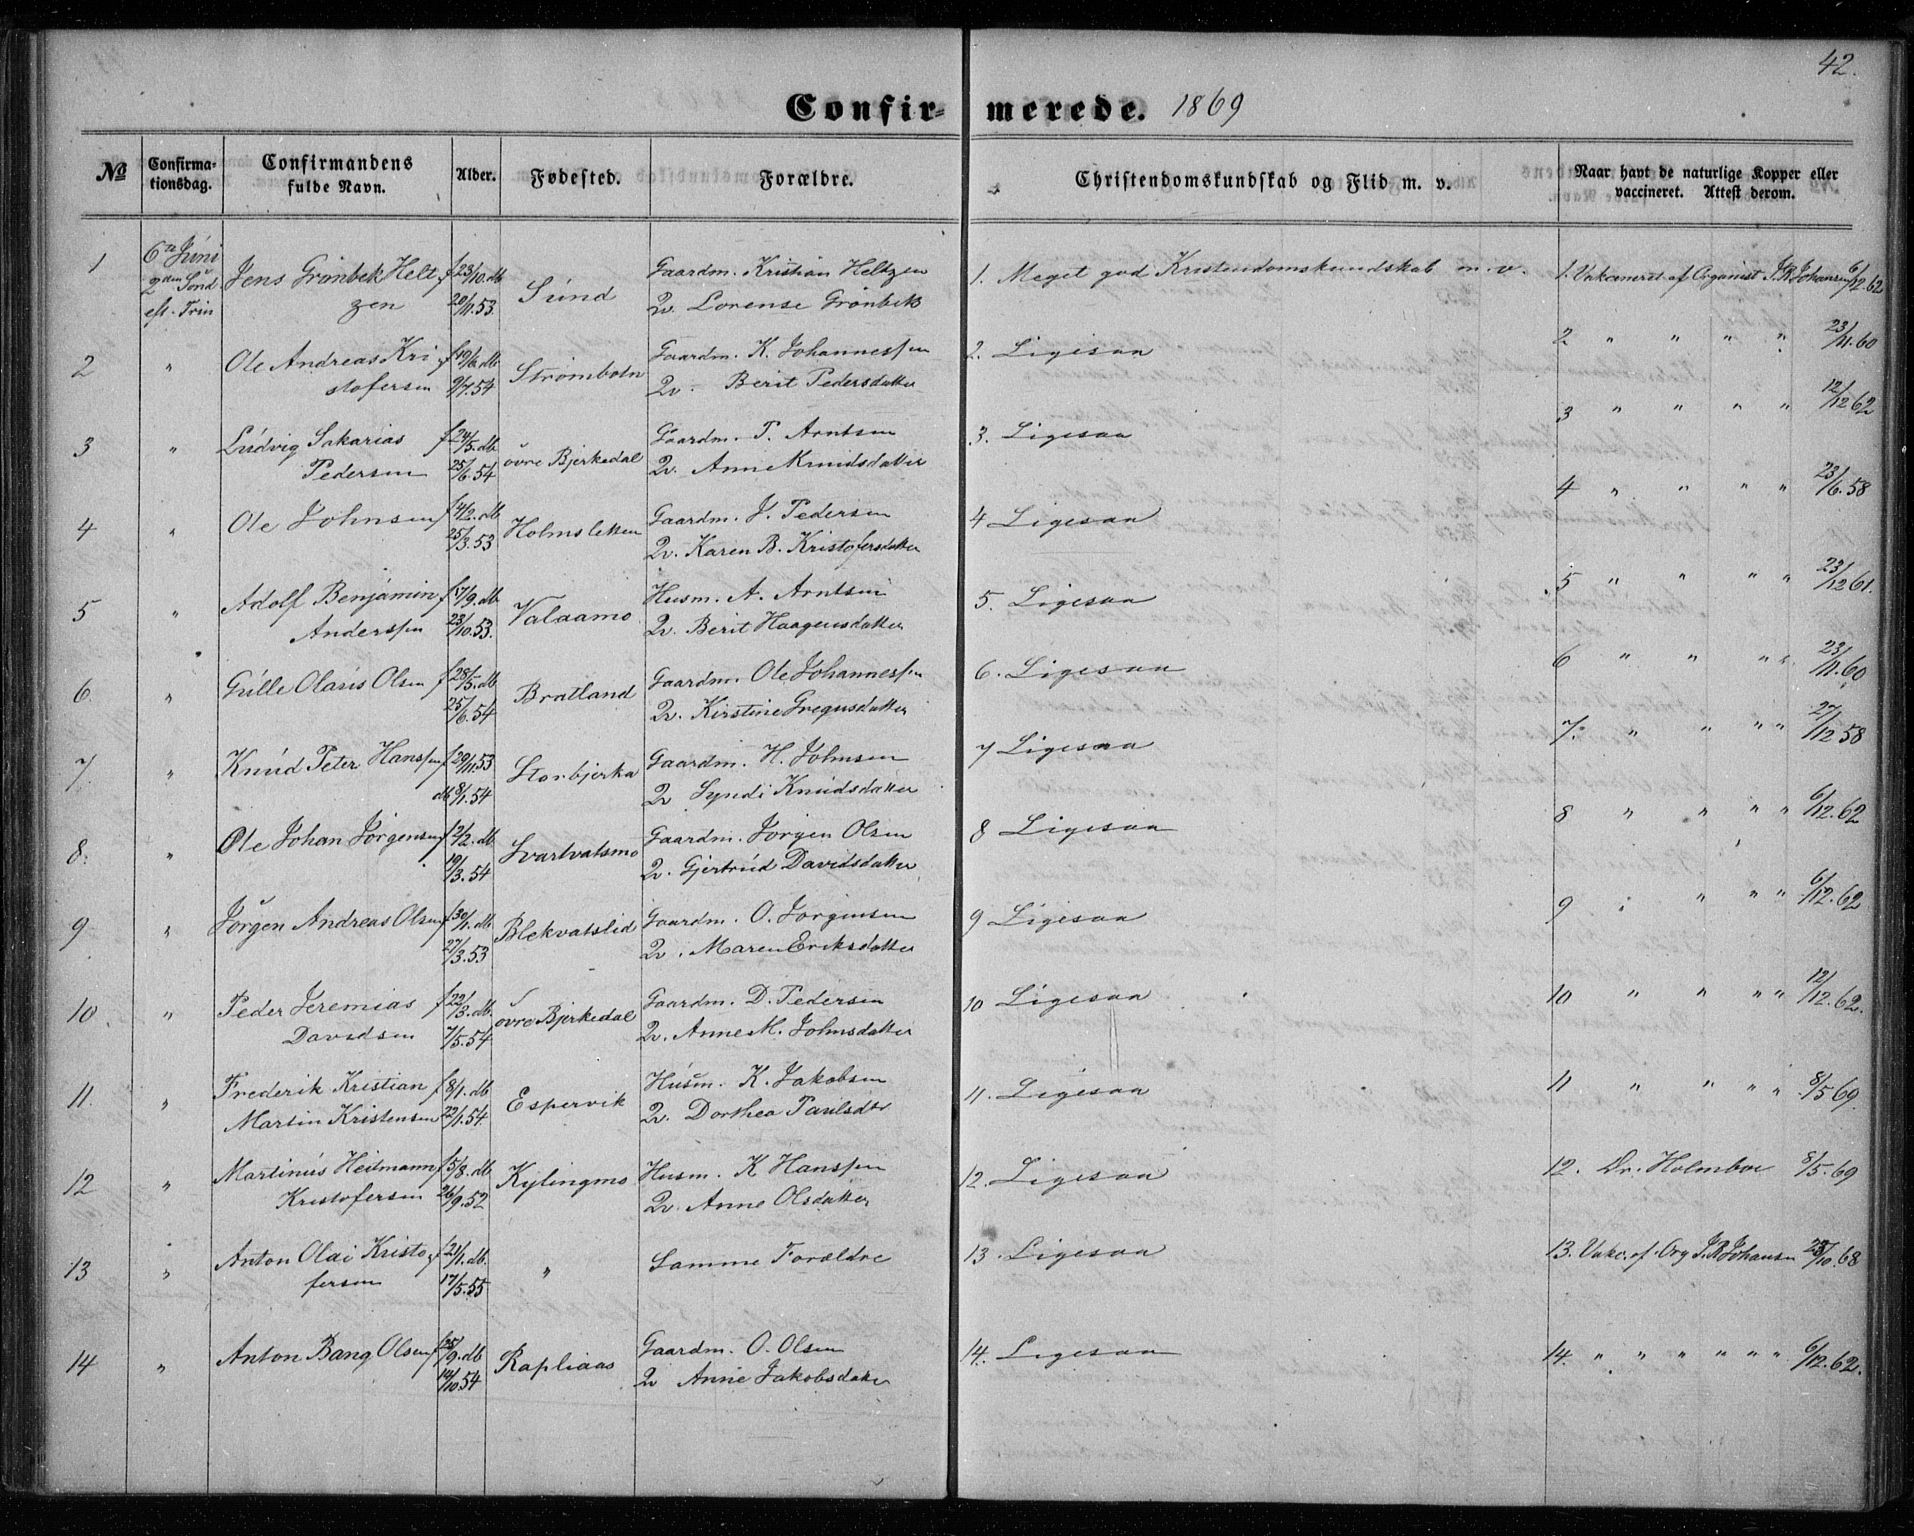 42.
Confirmerede. 1869
№ Confirmationsdag. Confirmandens fulde Navn. Alder. Fødested. Forældre. Christendomskundskab og Flid m. v. Naar havt de naturlige Kopper eller vaccineret. Attest derom.
1 6te Juni Jens Grönbek Helt f 23/10. db Sund Gaardm. Kristian Heltzen 1. Meget god Kristendomskundskab m. v. 1. Vakcineret af Organist J. R. Johansen 6/12.62
2den Sönd zen 20/11.53 Qv. Lorense Grönbek
eft. Trin
2 " Ole Andreas Kri f 19/6. db Strömbotn Gaardm. K. Johannessen 2. Ligesaa 2 " " " " 23/11.60
stofersen 9/7.54 Qv. Berit Pedersdatter
3 " Ludvig Sakarias f 24/5. db övre Bjerkedal Gaardm. P. Arntsen 3. Ligesaa 3 " " " " 12/12 62
Pedersen 25/6.54 Qv. Anne Knudsdatter
4 " Ole Johnsen f 4/2. db Holmsletten Gaardm. J. Pedersen 4 Ligesaa 4 " " " " 23/6.58
25/3.53 Qv. Karen B. Kristofersdatter
5 " Adolf Benjamin f 7/9. db Valaamo Husm. A. Arntsen 5. Ligesaa 5 " " " " 23/12 61.
Anderssen 23/10.53. Qv. Berit Haagensdatter
6. " Gulle Olaus Olsen f 28/5. db Bratland Gaardm. Ole Johannessen 6. Ligesaa 6 " " " " 23/11.60
25/6.54 Qv. Kirstine Gregusdatter
7. " Knud Peter Hanssen f 29/11.53 Storbjerka Gaardm. H. Johnsen 7 Ligesaa 7. " " " " 27/12 58
db 8/1.54 Qv Syndi Knudsdatter
8. " Ole Johan Jörgensen f 2/2. db Svartvatsmo Gaardm. Jörgen Olsen 8 Ligesaa 8 " " " " 6/12.62
19/3.54 Qv. Gjertrud Davidsdatter
9. " Jörgen Andreas Olsen f 30/1. db Blekvatslid Gaardm. O. Jörgensen 9 Ligesaa 9 " " " " 6/12.62
27/3.53 Qv. Maren Eriksdatter
10. " Peder Jeremias f 22/3. db. övre Bjerkedal Gaardm. D. Pedersen 10 Ligesaa 10 " " " " 12/12.62.
Davidsen 7/5.54 Qv. Anne M. Johnsdatter
11. " Frederik Kristian f 8/1. db Espervik Husm. K. Jakobsen 11. Ligesaa 11 " " " " 8/5 69.
Martin Kristensen 22/1.54. Qv. Dorthea Paulsdtr
12 " Martinus Heitmann f 5/8. db Kylingmo Husm. K Hanssen 12. Ligesaa 12. Dr. Holmboe 8/5.69
Kristofersen 26/9.52 Qv. Anne Olsdatter
13 " Anton Olai Kristo f 21/1. db. " Samme Forældre 13. Ligesaa 13. Vakc. af Org J. R. Johansen 25/10.68
fersen 17/5.55
14 " Anton Bang Olsen f 25/9. db Rapliaas Gaardm. O. Olsen 14. Ligesaa 14. " " " " " " 6/12.62.
14/10 54 Qv Anne Jakobsdatter